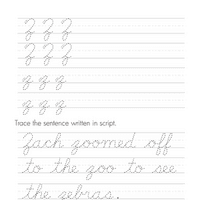 Z Z Z
Z Z Z
z z z
z z z
Trace the sentence written in script.
Zach zoomed off
to the zoo to see
the zebras.